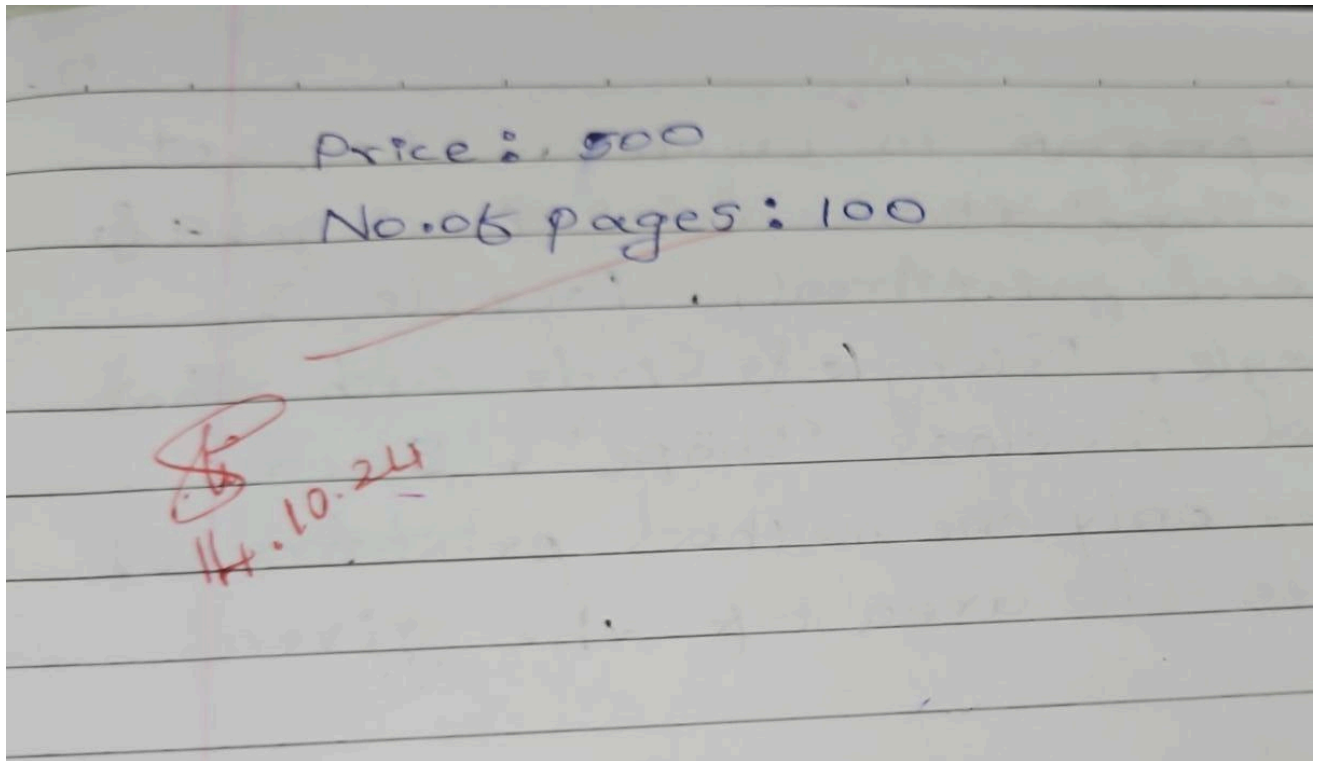 Price: 500
No.of pages: 100
14.10.24